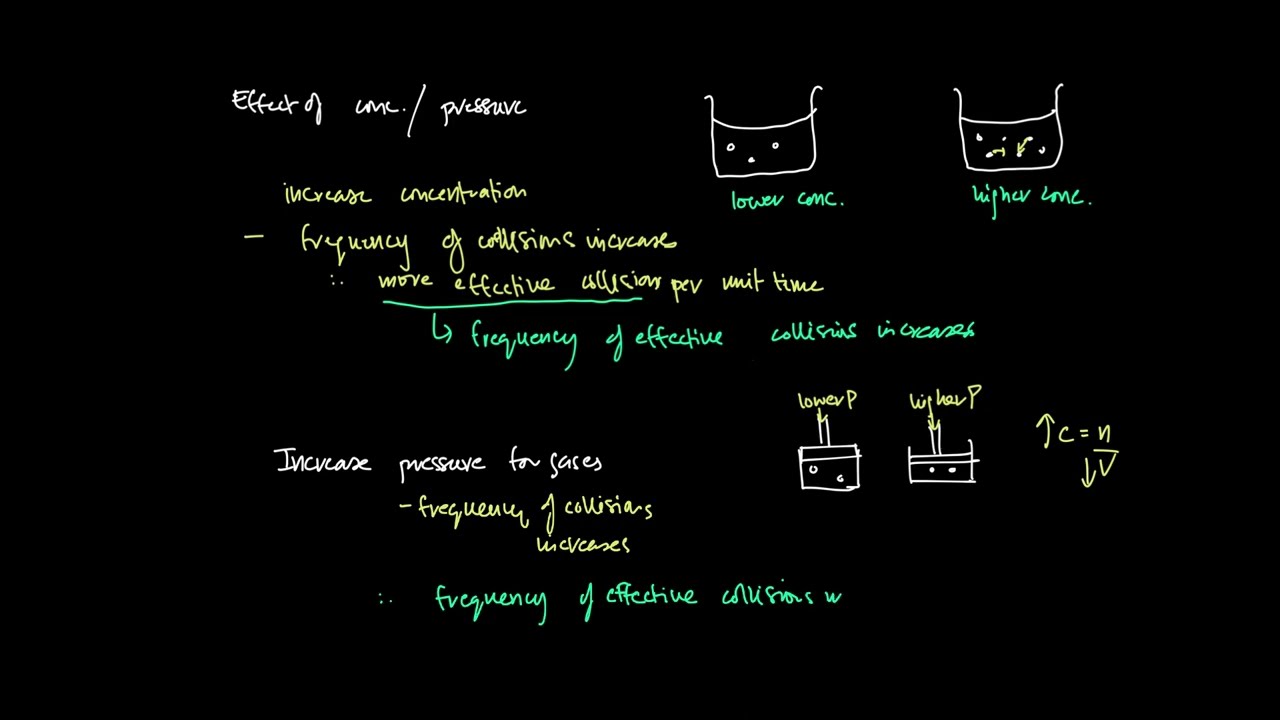 Effect of conc. / pressure
increase concentration
lower conc.
higher conc.
— frequency of collisions increases
∴ more effective collision per unit time
↳ frequency of effective collisions increases
lower P
higher P
↑ c = n
↓ V
Increase pressure for gases
- frequency of collisions
increases
∴ frequency of effective collisions w